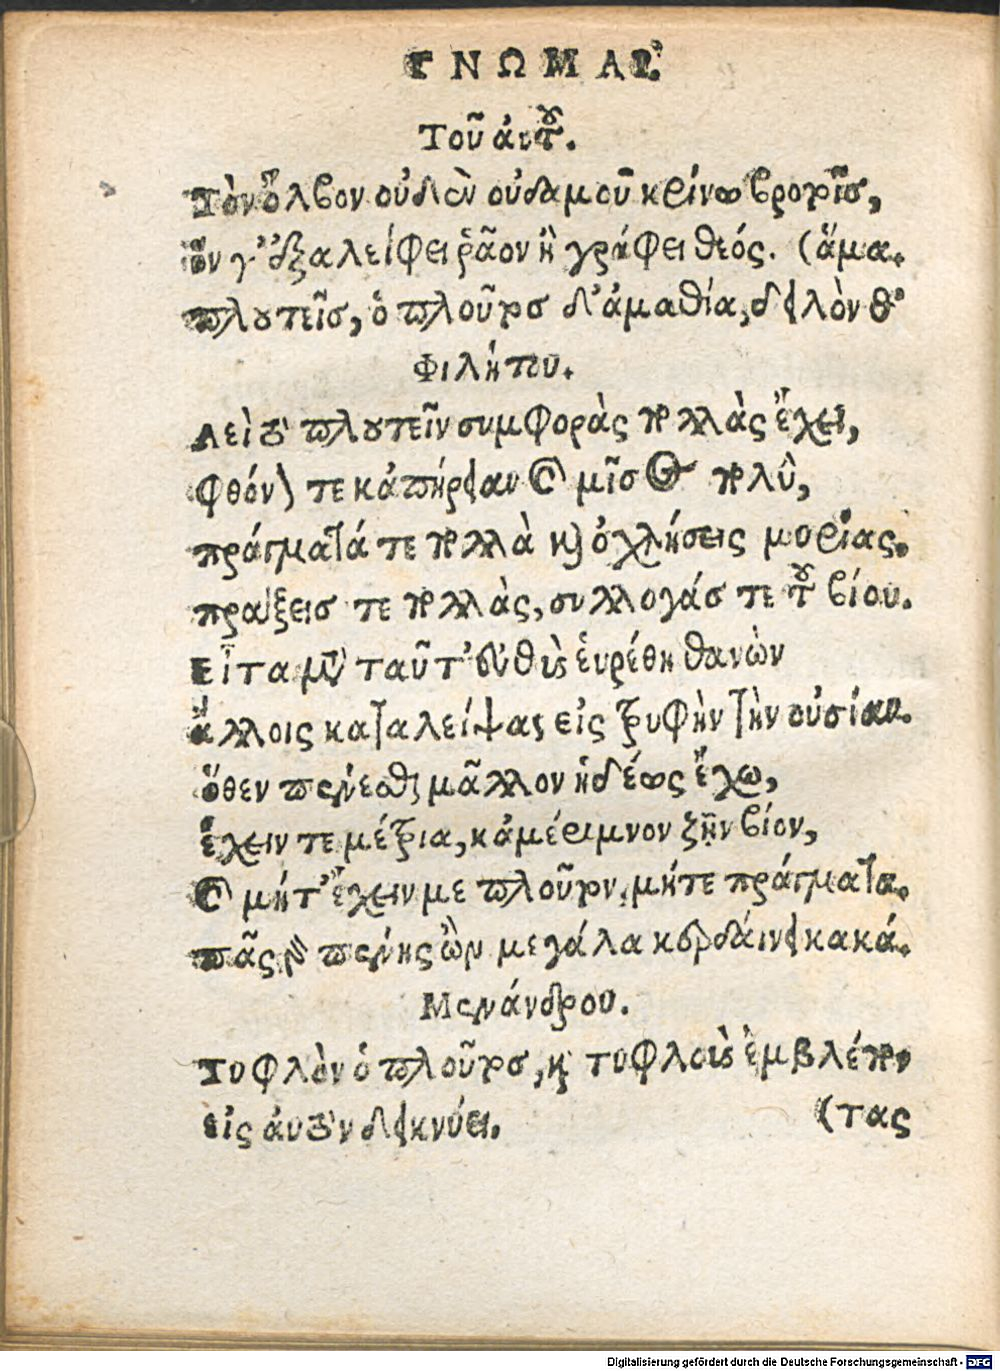 ΓΝΩΜΑΙ.
Τοῦ ἀυτοῦ.
Τὸν ὄλβον οὐδὲν οὐδαμοῦ κρίνω βροτοῖς,
ὅν γ' ἐξαλείφει ῥᾶον ἢ γράφει θεός. (ἅμα.
πλουτεῖς, ὁ πλοῦτος δ' ἀμαθία, δειλὸν θ'
Φιλήπου.
Αεὶ τὸ πλουτεῖν συμφορὰς πολλὰς ἔχει,
φθόνον τε κἀπήρειαν καὶ μῖσος πολύ,
πράγματά τε πολλὰ καὶ ὀχλήσεις μυρίας.
πράξεις τε πολλὰς, συλλογάς τε τοῦ βίου.
Εἶτα μετὰ ταῦτ' εὐθὺς ἑυρέθη θανὼν
ἄλλοις καταλείψας εἰς τρυφὴν τὴν οὐσίαν.
ὅθεν πένεσθαι μᾶλλον ἡδέως ἔχω,
ἔχειν τε μέτρια, κἀμέριμνον ζῆν βίον,
καὶ μήτ' ἔχειν με πλοῦτον, μήτε πράγματα.
πᾶς γὰρ πένης ὢν μεγάλα κερδαίνει κακά.
Μενάνδρου.
Τυφλὸν ὁ πλοῦτος, καὶ τυφλοὺς ἐμβλέπον
εἰς ἀυτὸν δεικνύει. (τας
Digitalisierung gefördert durch die Deutsche Forschungsgemeinschaft - DFG